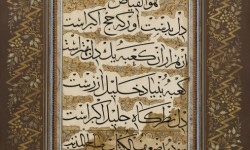 هو الفیاض
دل بدست آور که حج اکبر است
از هزاران کعبه یک دل بهتر است
کعبه بنیاد خلیل آزر است
دل گذرگاه جلیل اکبر است